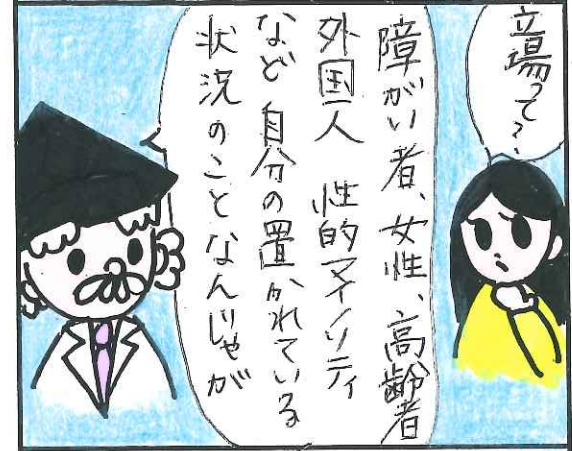 立場って?
障がい者、女性、高齢者
外国人 性的マイノリティ
など 自分の置かれている
状況のことなんじゃが